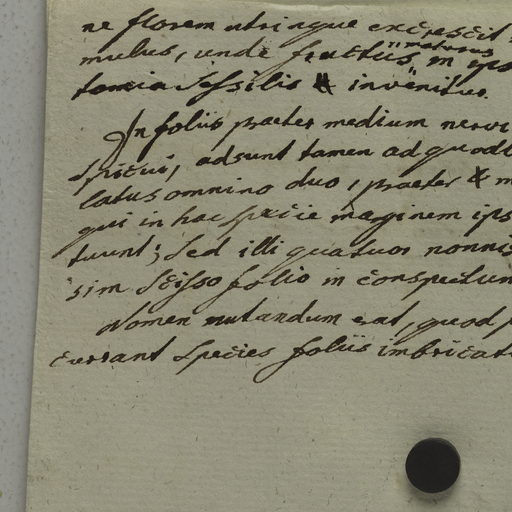 ne florem utrinque excrescit
mulus, unde fructus immaturus, in ips
tamia sessilis & invenitur.
In foliis praeter medium nerv
spicui, adsunt tamen ad quodl
latus omnino duo, praeter & m
qui in hac specie marginem ips
tuunt; sed illi quatuor nonnis
sim scisso folio in conspectum
Nomen mutandum erat, quod p
currant species foliis imbricat